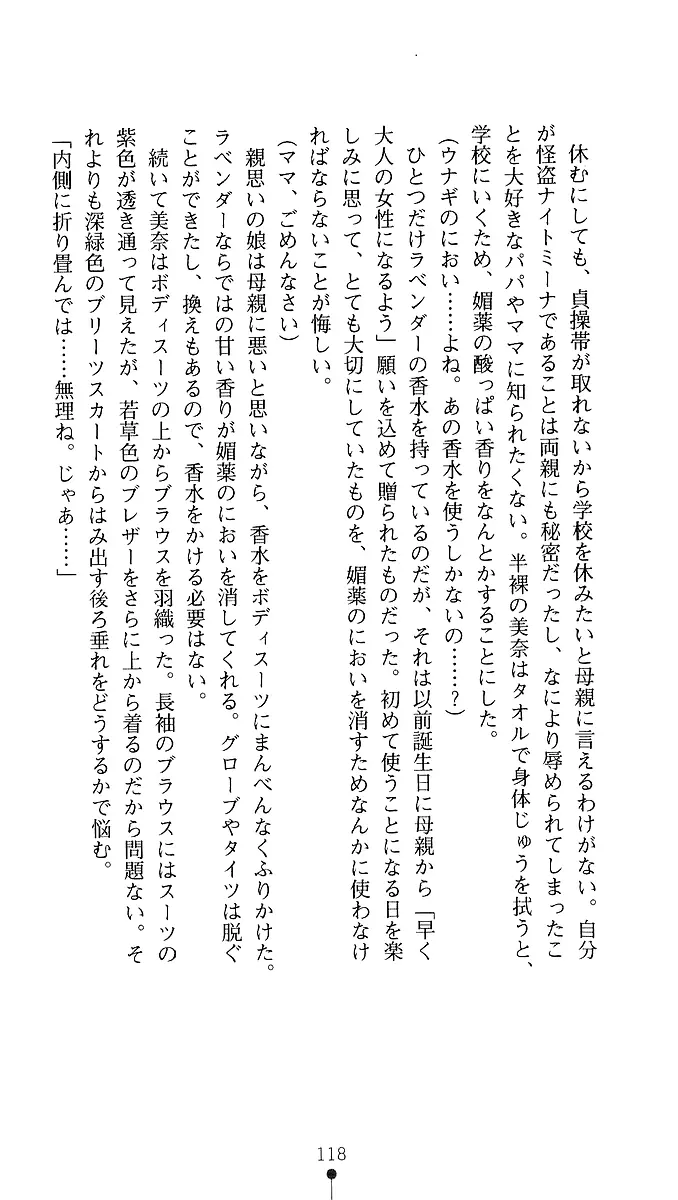 休むにしても、貞操帯が取れないから学校を休みたいと母親に言えるわけがない。自分
が怪盗ナイトミーナであることは両親にも秘密だったし、なにより辱められてしまったこ
とを大好きなパパやママに知られたくない。半裸の美奈はタオルで身体じゅうを拭うと、
学校にいくため、媚薬の酸っぱい香りをなんとかすることにした。
(ウナギのにおい……よね。あの香水を使うしかないの……？)
ひとつだけラベンダーの香水を持っているのだが、それは以前誕生日に母親から「早く
大人の女性になるよう」願いを込めて贈られたものだった。初めて使うことになる日を楽
しみに思って、とても大切にしていたものを、媚薬のにおいを消すためなんかに使わなけ
ればならないことが悔しい。
(ママ、ごめんなさい)
親思いの娘は母親に悪いと思いながら、香水をボディスーツにまんべんなくふりかけた。
ラベンダーならではの甘い香りが媚薬のにおいを消してくれる。グローブやタイツは脱ぐ
ことができたし、換えもあるので、香水をかける必要はない。
続いて美奈はボディスーツの上からブラウスを羽織った。長袖のブラウスにはスーツの
紫色が透き通って見えたが、若草色のブレザーをさらに上から着るのだから問題ない。そ
れよりも深緑色のプリーツスカートからはみ出す後ろ垂れをどうするかで悩む。
「内側に折り畳んでは……無理ね。じゃあ……」
118